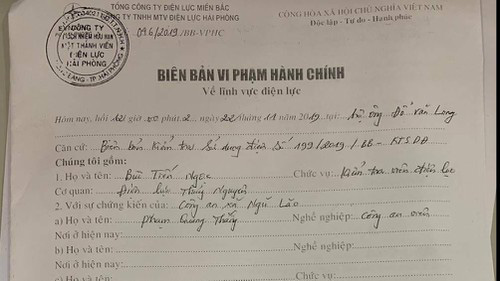 TỔNG CÔNG TY ĐIỆN LỰC MIỀN BẮC
CÔNG TY TNHH MTV ĐIỆN LỰC HẢI PHÒNG
096/2019/BB-VPHC
CỘNG HÒA XÃ HỘI CHỦ NGHĨA VIỆT NAM
Độc lập - Tự do - Hạnh phúc
CÔNG TY
TRÁCH NHIỆM HỮU HẠN
MỘT THÀNH VIÊN
ĐIỆN LỰC
HẢI PHÒNG
BIÊN BẢN VI PHẠM HÀNH CHÍNH
Về lĩnh vực điện lực
Hôm nay, hồi 12 giờ 00 phút, ngày 22 tháng 11 năm 2019 tại: hộ ông Đỗ Văn Long
Căn cứ: Biên bản kiểm tra sử dụng điện Số 199/2019/BB-KTSDĐ
Chúng tôi gồm:
1. Họ và tên: Bùi Tiến Ngọc Chức vụ: kiểm tra viên điện lực
Cơ quan: Điện lực Thủy Nguyên
2. Với sự chứng kiến của: Công an xã Ngũ Lão
a) Họ và tên: Phạm Quang Thắng Nghề nghiệp: Công an viên
Nơi ở hiện nay:
b) Họ và tên: Nghề nghiệp:
Nơi ở hiện nay:
c) Họ và tên: Chức vụ: